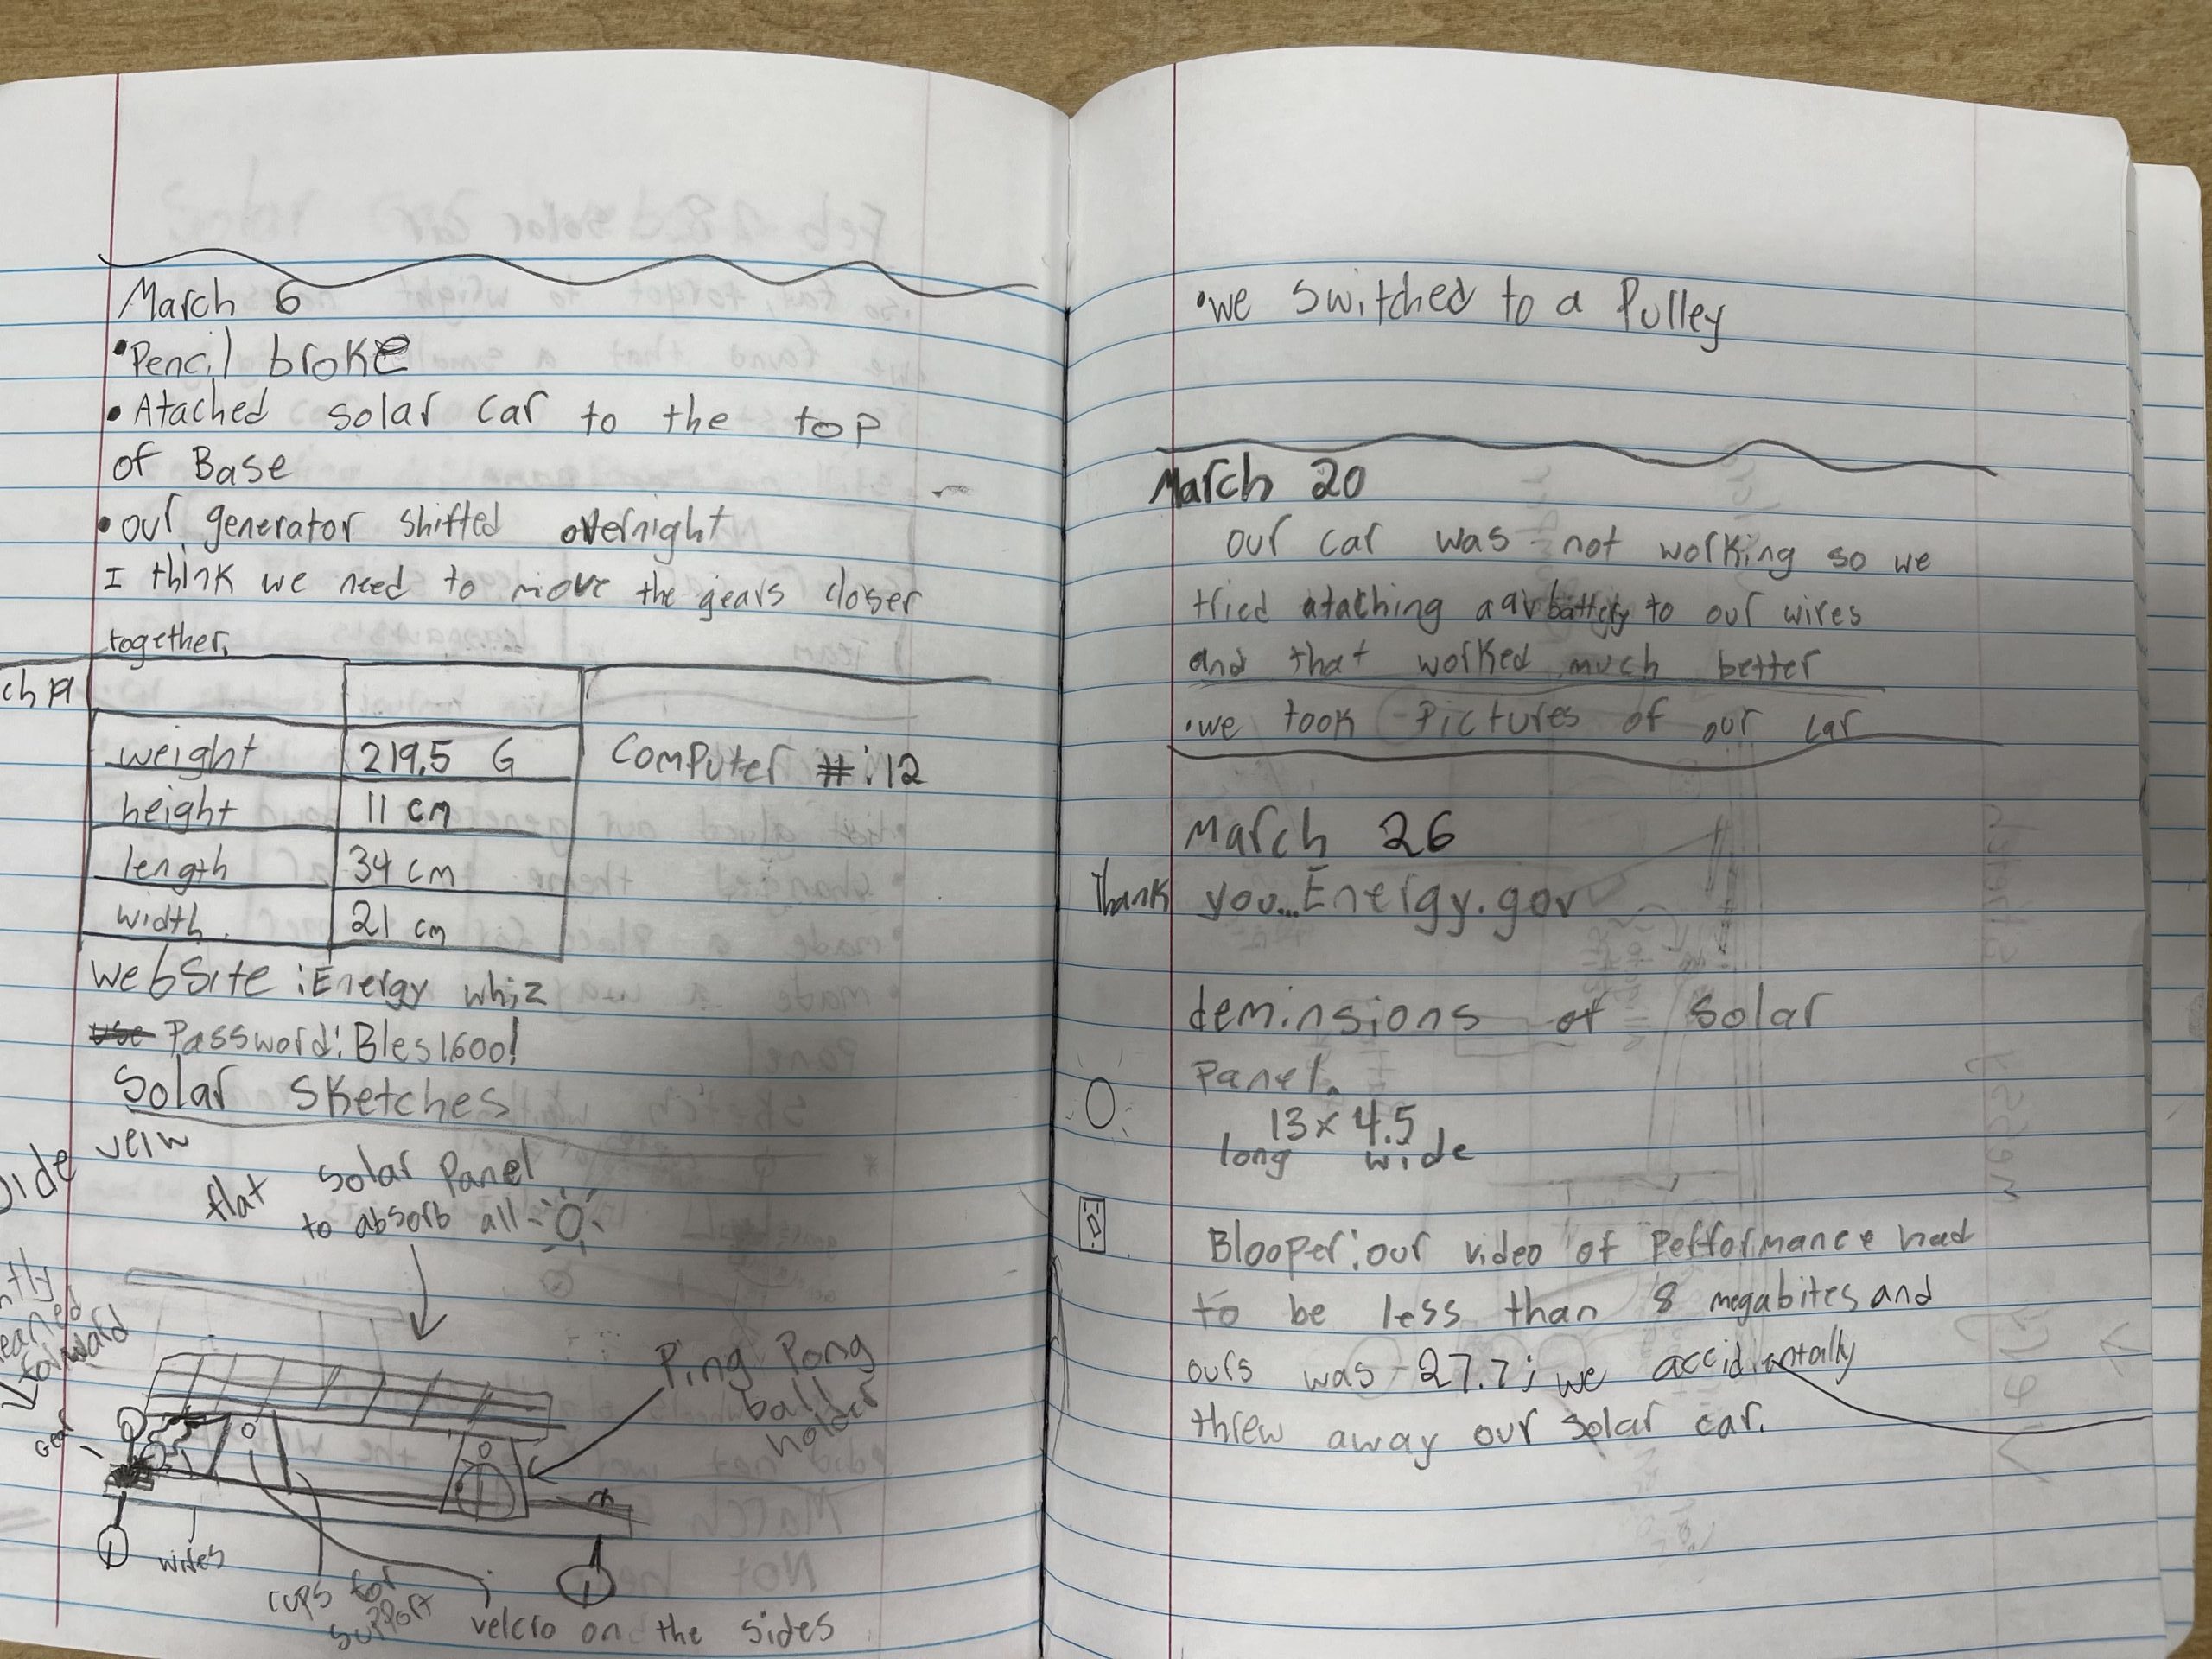 March 6
•Pencil broke
• Atached solar car to the top
of Base
• our generator shifted overnight
I think we need to move the gears closer
together.
ch 19
weight 219.5 G
height 11 cm
length 34 cm
width 21 cm
Computer #:12
website: Energy whiz
Password: Bles1600!
Solar Sketches
side veiw
flat solar panel
to absorb all
leaned
forward
gear
Ping Pong
ball
holder
wires
cups for
support
velcro on the sides
•we switched to a Pulley
March 20
our car was not working so we
tried ataching battery to our wires
and that worked much better
•we took Pictures of our car
March 26
Thank you...Energy.gov
deminsions of solar
Panel.
13x 4.5
long wide
Blooper: our video of Pefformance had
to be less than 8 megabites and
ours was 27.7; we accidentally
threw away our solar car.